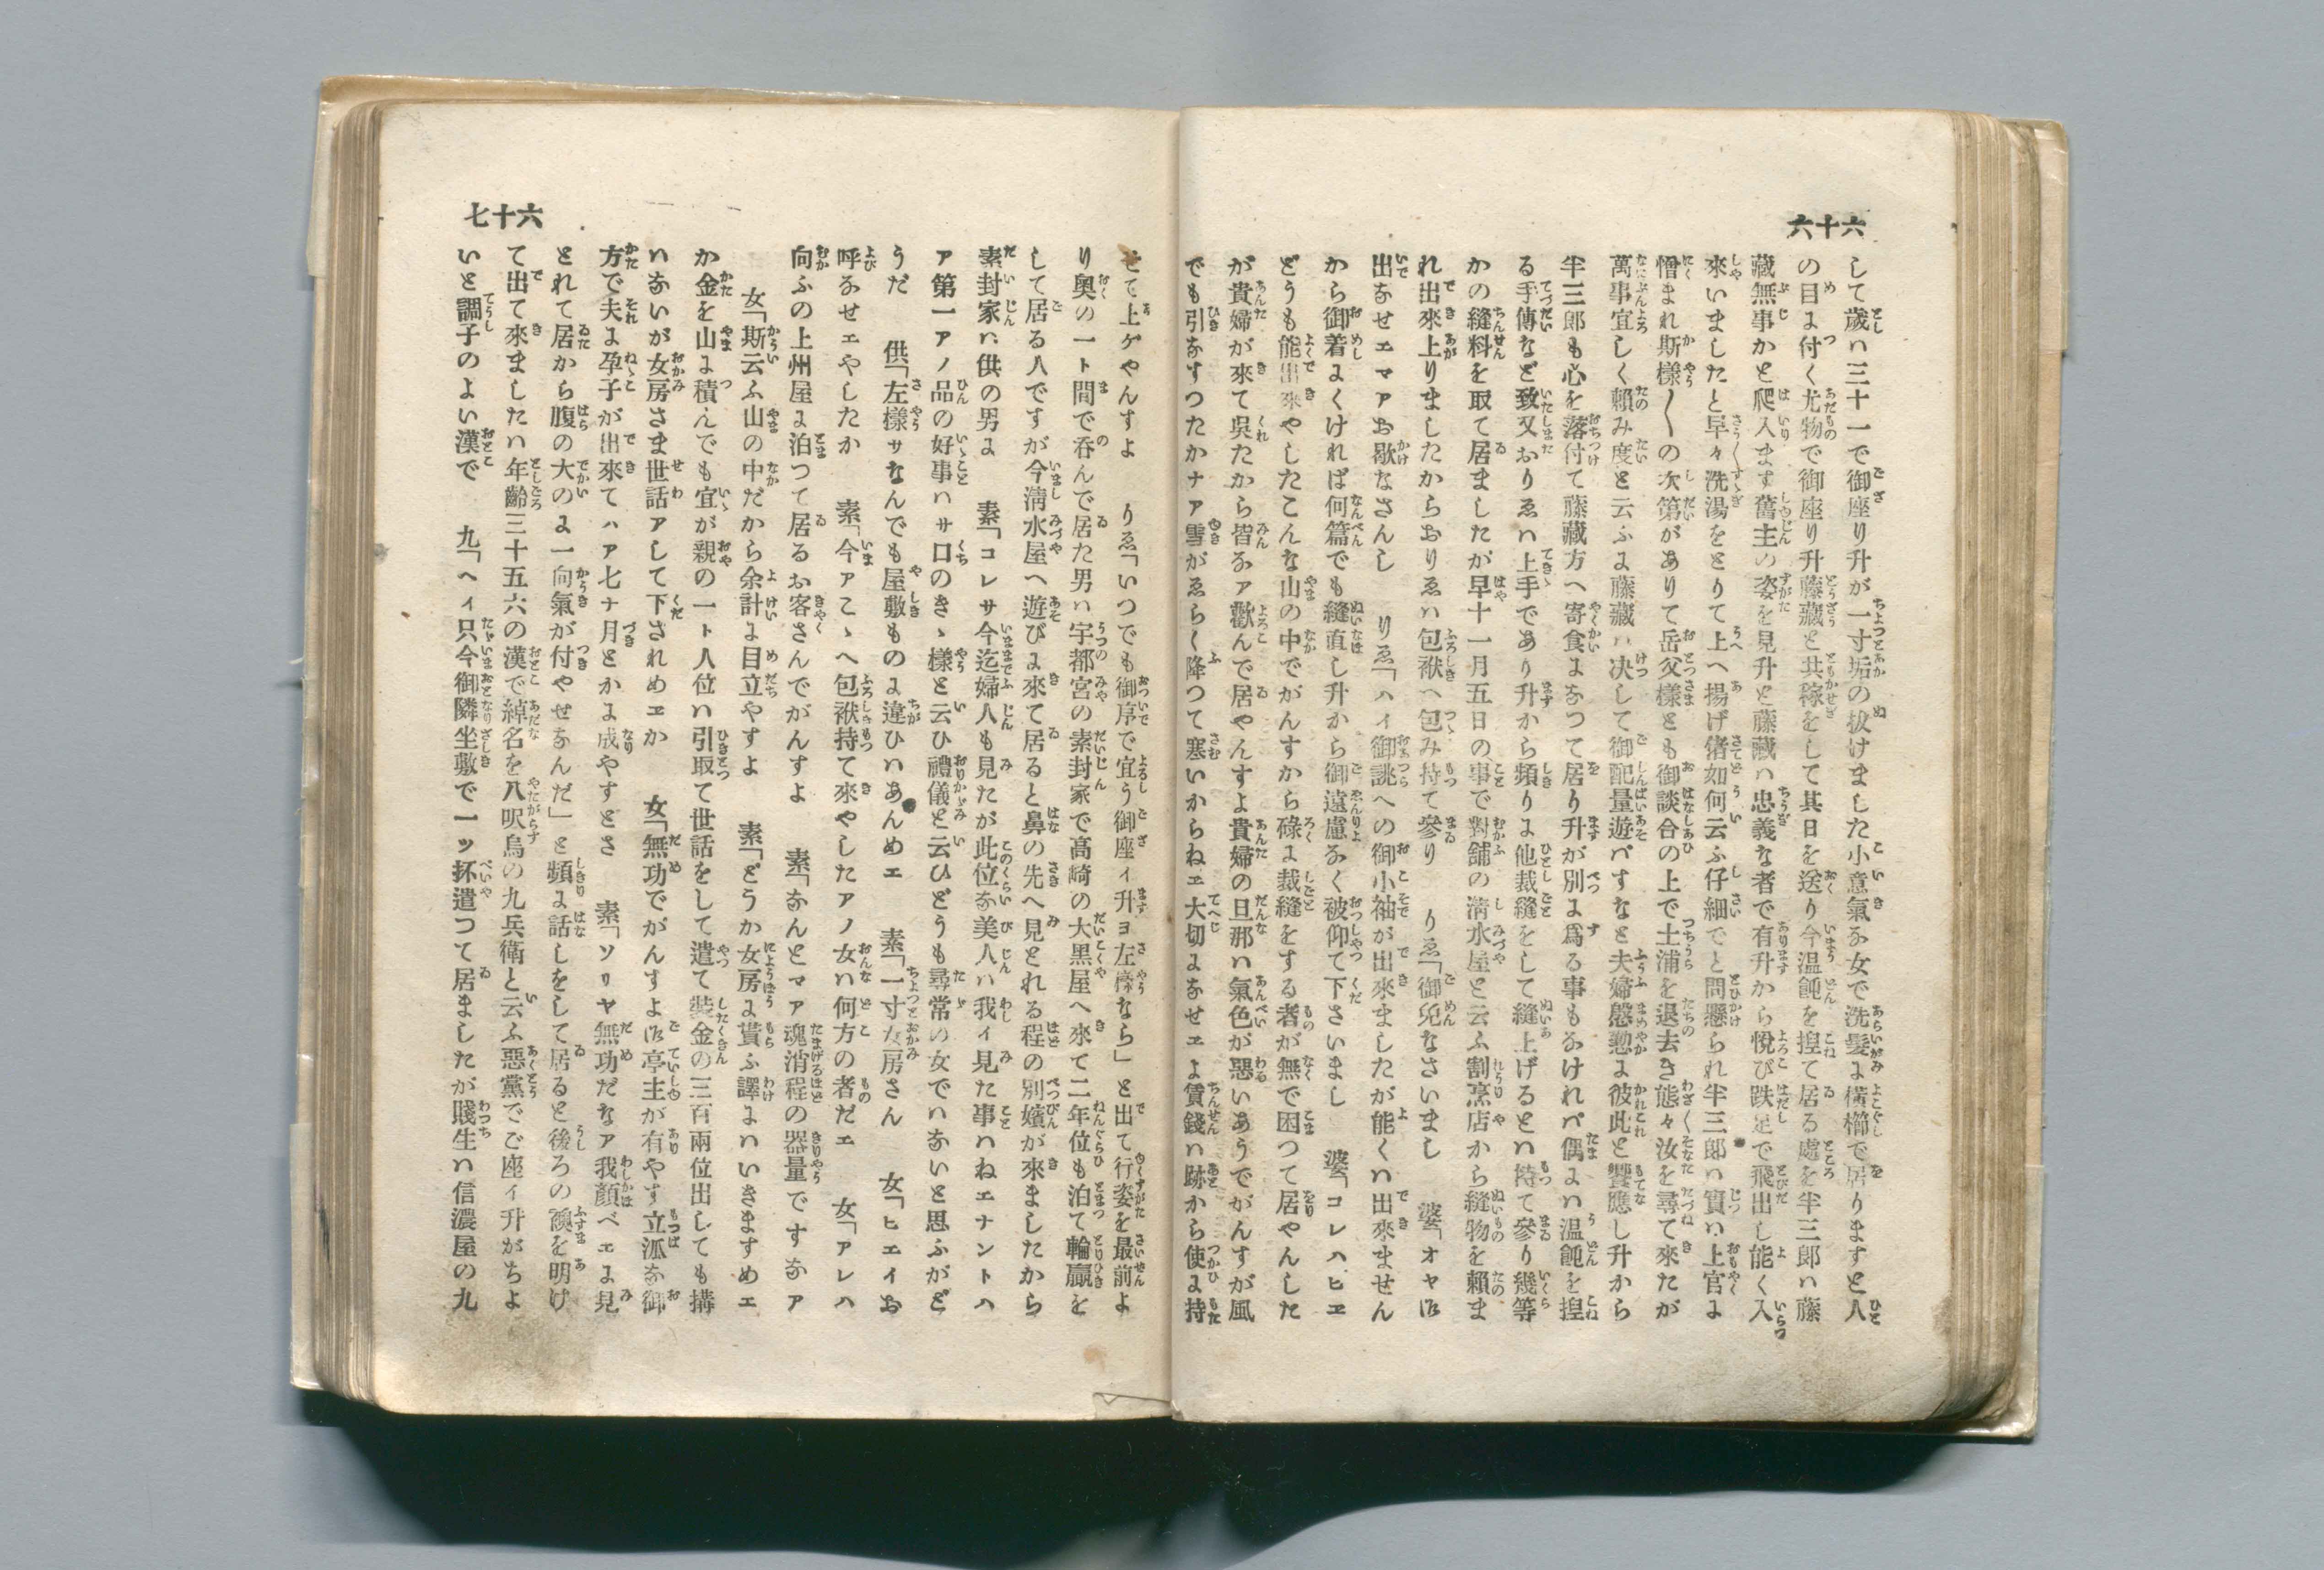 六十六
して歳ハ三十一で御座り升が一寸垢の抜けました小意氣な女で洗髮に横櫛で居りますと人
の目に付く尤物で御座り升藤藏と共稼をして其日を送り今温飩を揑て居る處を半三郎ハ藤
藏無事かと爬入ます舊主の姿を見升と藤藏ハ忠義な者で有升から悅び跣足で飛出し能く入
來いましたと早々洗湯をとりて上へ揚げ偖如何云ふ仔細でと問懸られ半三郎ハ實ハ上官に
憎まれ斯樣〱の次第がありて岳父樣とも御談合の上で土浦を退去き態々汝を尋て來たが
萬事宜しく賴み度と云ふに藤藏ハ决して御配量遊バすなと夫婦慇懃に彼此と饗應し升から
半三郎も心を落付て藤藏方へ寄食になつて居り升が別に爲る事もなけれバ偶にハ温飩を揑
る手傳など致又おりゑハ上手であり升から頻りに他裁縫をして縫上げるとハ持て參り幾等
かの縫料を取て居ましたが早十一月五日の事で對舖の淸水屋と云ふ割烹店から縫物を賴ま
れ出來上りましたからおりゑハ包袱へ包み持て參り　りゑ「御免なさいまし　婆「オヤ㕝
出なせエマアお歇なさんし　りゑ「ハィ御誂への御小袖が出來ましたが能くハ出來ません
から御着にくければ何篇でも縫直し升から御遠慮なく被仰て下さいまし　婆「コレハヒエ
どうも能出來やしたこんな山の中でがんすから碌に裁縫をする者が無で困つて居やんした
が貴婦が來て呉たから皆なア歡んで居やんすよ貴婦の旦那ハ氣色が惡いあうでがんすが風
でも引なすつたかナア雪がゑらく降つて寒いからねエ大切になせエよ賃錢ハ跡から使に持
せて上ゲやんすよ　りゑ「いつでも御序で宜う御座ィ升ヨ左樣なら」と出て行姿を最前よ
り奧の一ト間で呑んで居た男ハ宇都宮の素封家で高崎の大黑屋へ來て二年位も泊て輸贏を
して居る人ですが今淸水屋へ遊びに來て居ると鼻の先へ見とれる程の別嬪が來ましたから
素封家ハ供の男に　素「コレサ今迄婦人も見たが此位な美人ハ我ィ見た事ハねエナントハ
ア第一アノ品の好事ハサ口のきゝ樣と云ひ禮儀と云ひどうも尋常の女でハないと思ふがど
うだ　供「左樣サなんでも屋敷ものに違ひハあんめエ　素「一寸女房さん　女「ヒエイお
呼なせエやしたか　素「今アこゝへ包袱持て來やしたアノ女ハ何方の者だエ　女「アレハ
向ふの上州屋に泊つて居るお客さんでがんすよ　素「なんとマア魂消程の器量ですなア
女「斯云ふ山の中だから余計に目立やすよ　素「どうか女房に貰ふ譯にハいきますめエ
か金を山に積んでも宜が親の一ト人位ハ引取て世話をして遣て裝金の三百兩位出しても搆
ハないが女房さま世話アして下されめエか　女「無功でがんすよ㕝亭主が有やす立派な御
方で夫に孕子が出來てハア七ナ月とかに成やすどさ　素「ソリヤ無功だなア我顏ベエに見
とれて居から腹の大のに一向氣が付やせなんだ」と頻に話しをして居ると後ろの襖を明け
て出て來ましたハ年齡三十五六の漢で綽名を八呎烏の九兵衛と云ふ惡黨でご座ィ升がちよ
いと調子のよい漢で　九「ヘィ只今御隣坐敷で一ッ抔遣つて居ましたが賤生ハ信濃屋の九
六十七